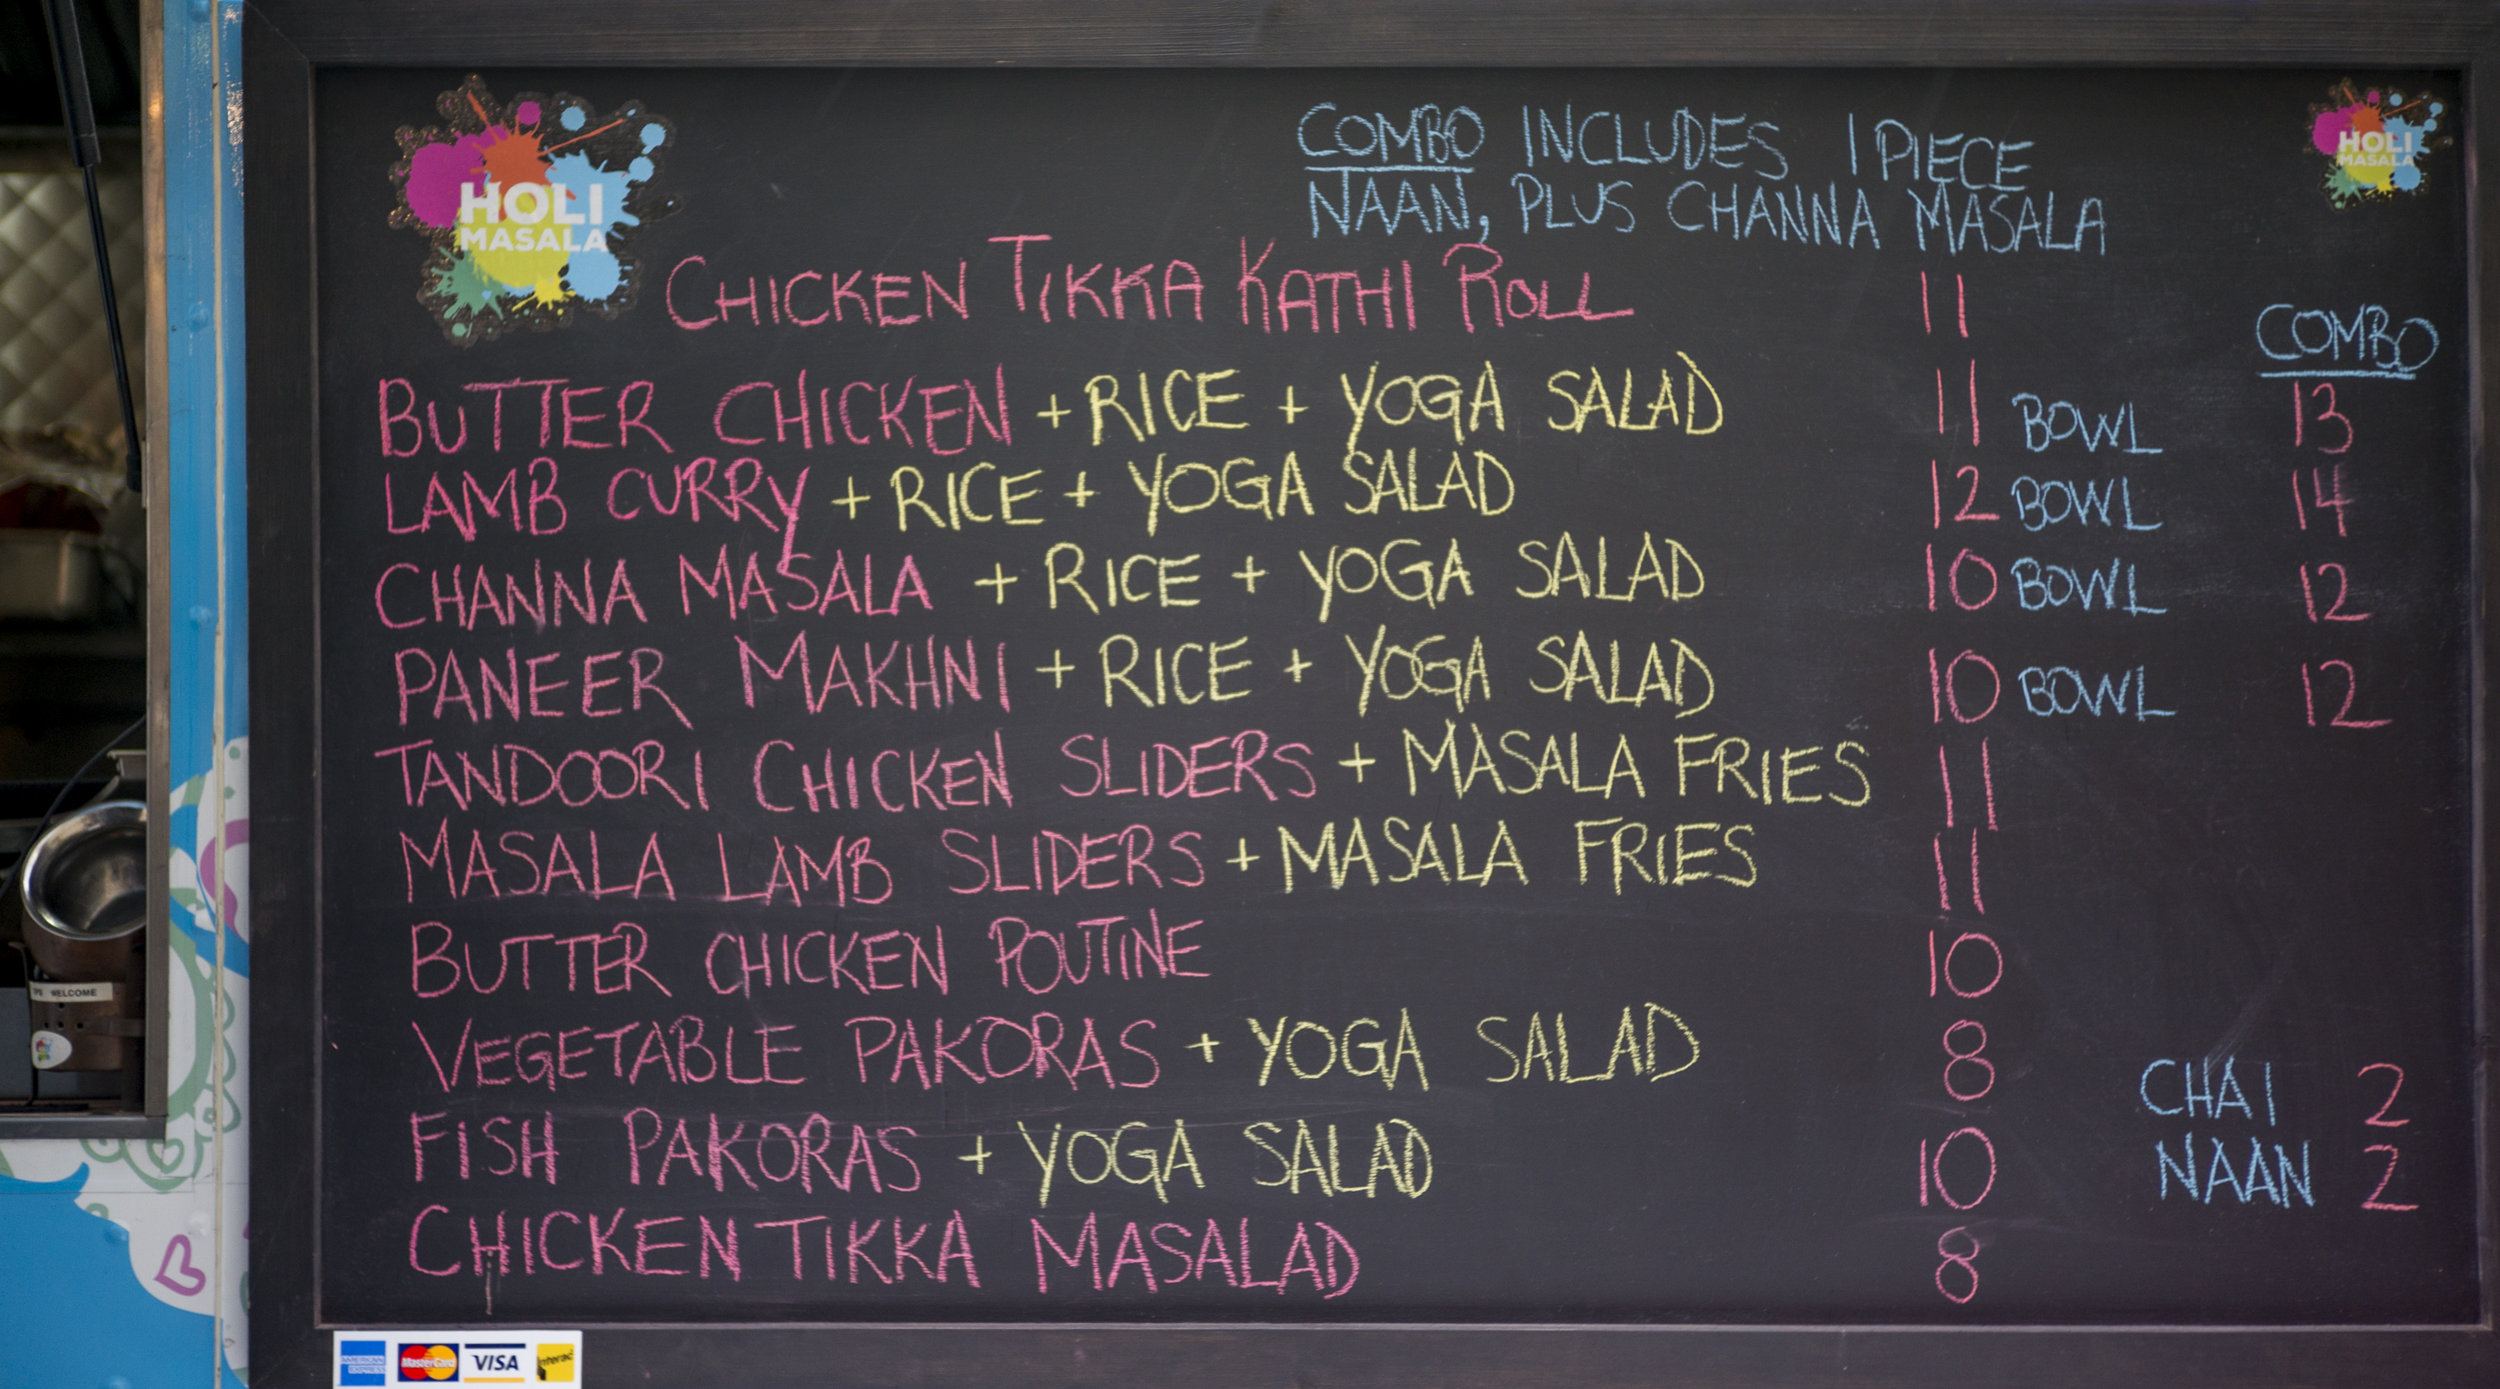 HOLI
MASALA
COMBO INCLUDES 1 PIECE
NAAN, PLUS CHANNA MASALA
HOLI
MASALA
CHICKEN TIKKA KATHI ROLL 11
COMBO
BUTTER CHICKEN + RICE + YOGA SALAD 11 BOWL 13
LAMB CURRY + RICE + YOGA SALAD 12 BOWL 14
CHANNA MASALA + RICE + YOGA SALAD 10 BOWL 12
PANEER MAKHNI + RICE + YOGA SALAD 10 BOWL 12
TANDOORI CHICKEN SLIDERS + MASALA FRIES 11
MASALA LAMB SLIDERS + MASALA FRIES 11
BUTTER CHICKEN POUTINE 10
VEGETABLE PAKORAS + YOGA SALAD 8
CHAI 2
FISH PAKORAS + YOGA SALAD 10
NAAN 2
CHICKEN TIKKA MASALAD 8
WELCOME
AMERICAN
EXPRESS
MasterCard
VISA
Interac